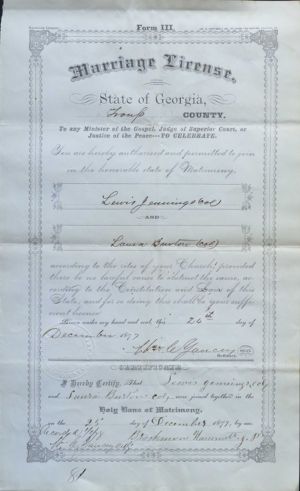 Form III.
Marriage License.
State of Georgia,
Troup COUNTY.
To any Minister of the Gospel, Judge of Superior Court, or
Justice of the Peace—TO CELEBRATE.
You are hereby authorized and permitted to join
in the honorable state of Matrimony,
Lewis Jennings Col
AND
Laura Burton (Col)
according to the rites of your Church; provided
there be no lawful cause to obstruct the same, ac-
cording to the Constitution and Laws of this
State, and for so doing this shall be your suffi-
cient license.
Given under my hand and seal, this 24th day of
December 1877
Yancey
Ordinary.
CERTIFICATE
I Hereby Certify, That Lewis Jennings, Col,
and Laura Burton Col, were joined together in the
Holy Bans of Matrimony.
on the 25 day of December 1877, by me
Recorded
Yancey Ordy